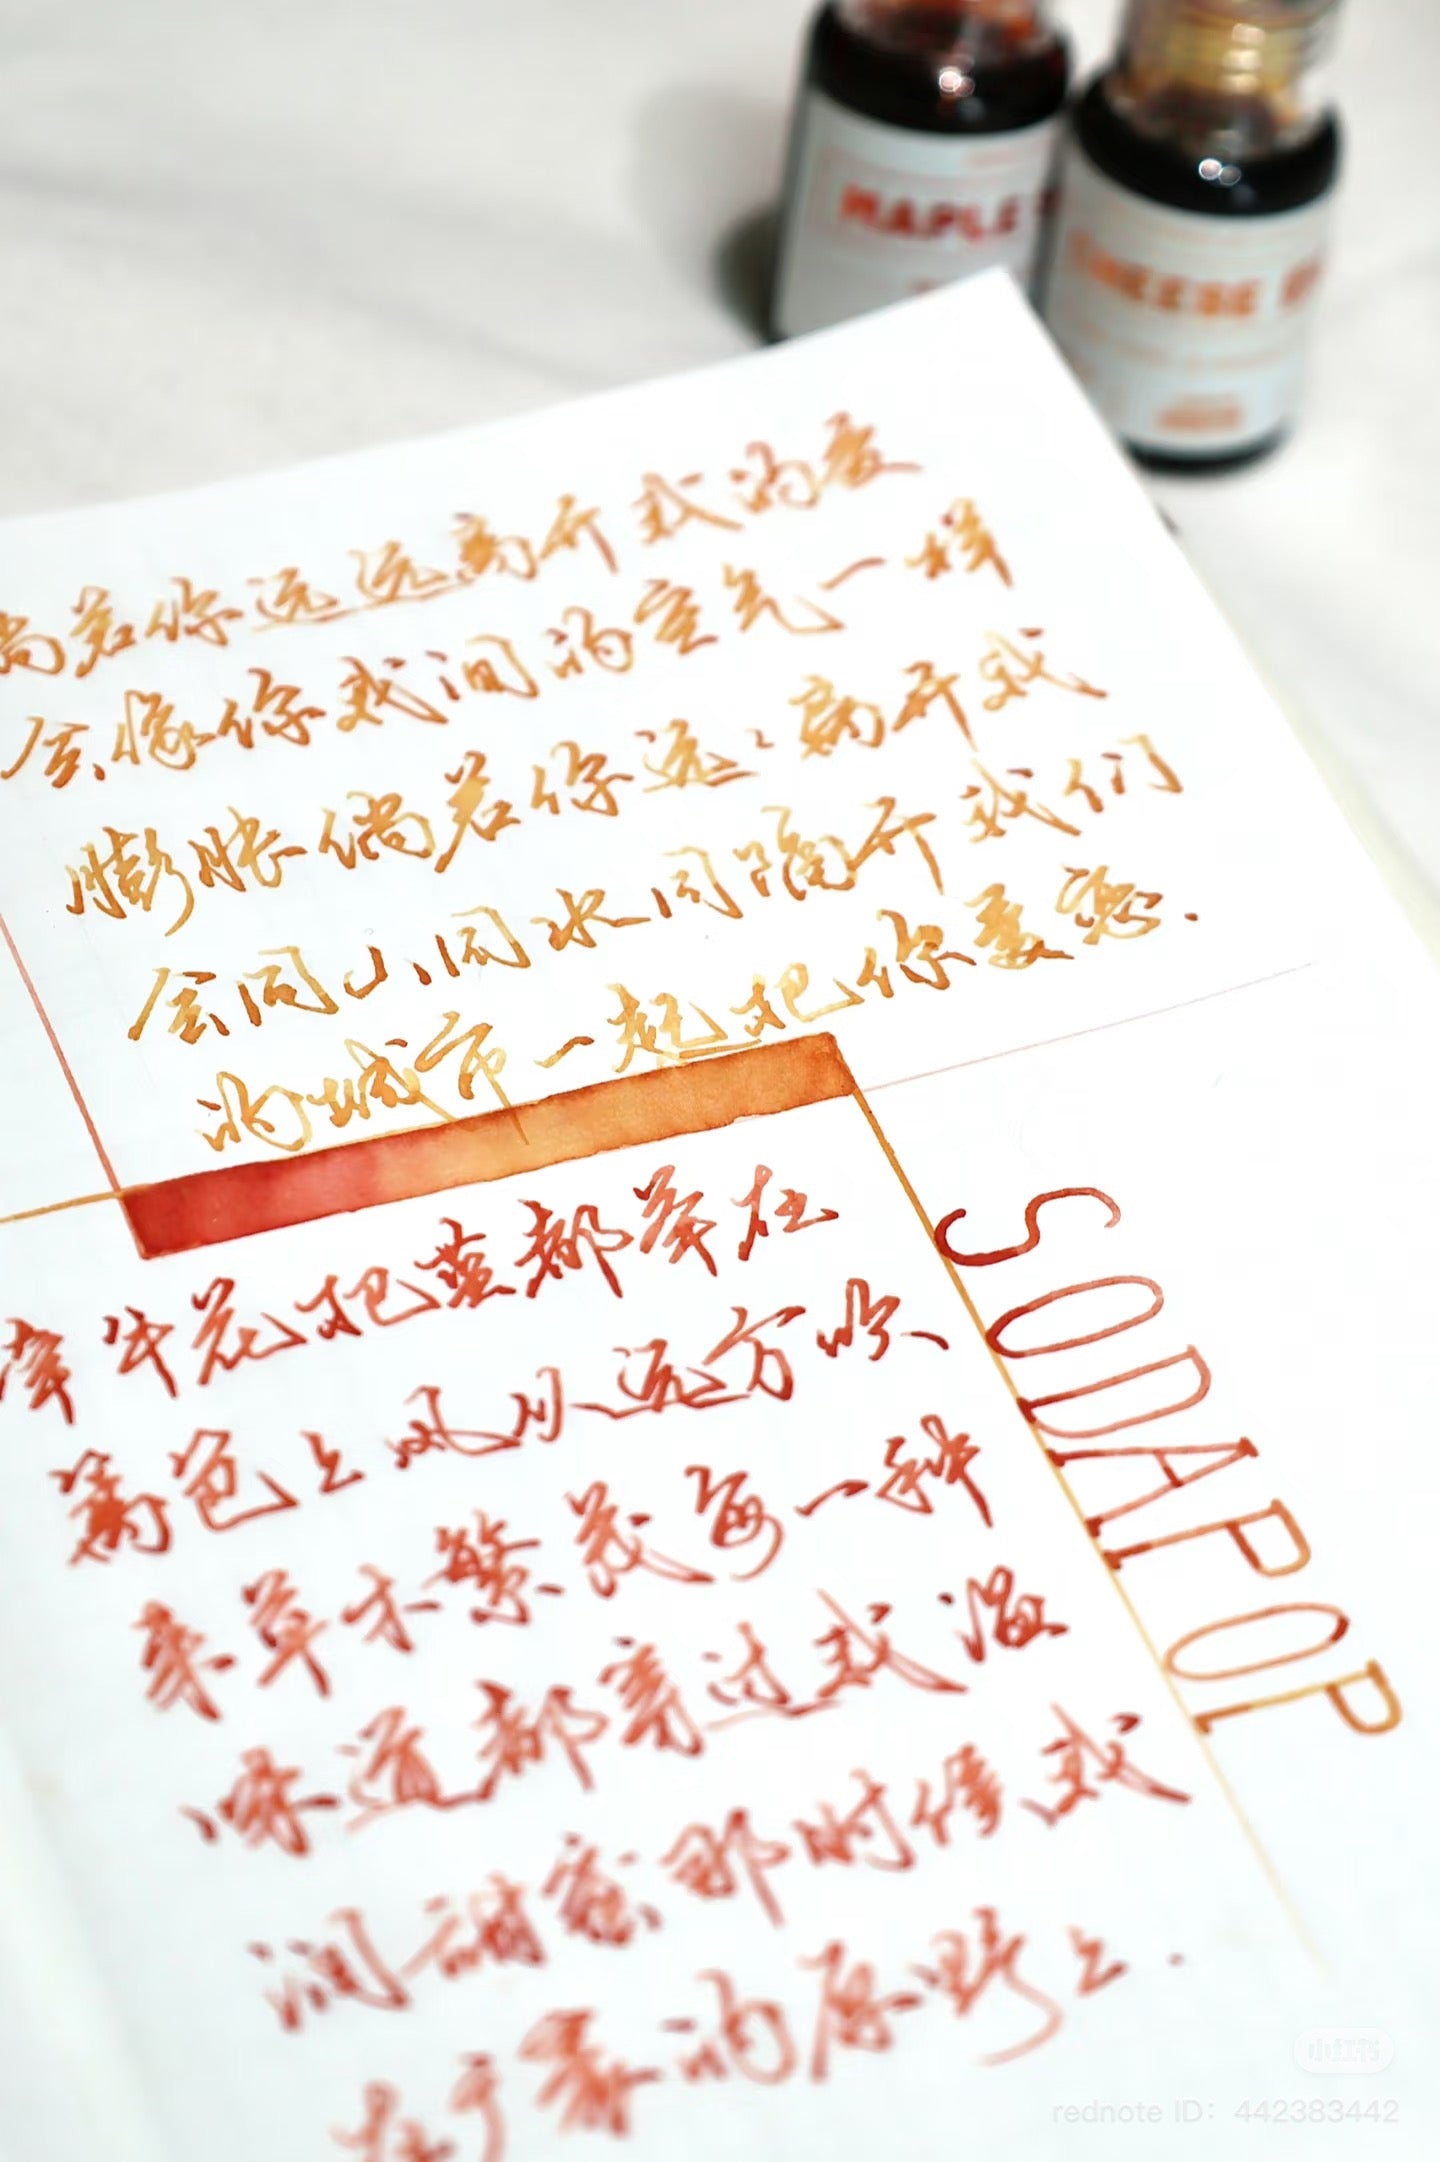 MAPLE
CHEESE
倘若你远远离开我的爱
会像你我间的空气一样
膨胀倘若你远々离开我
会同山同水同隔开我们
的城市一起把你爱恋.
牵牛花把蓝都举在
篱笆上风从远方吹
来草木繁茂每一种
味道都穿过我湿
润甜蜜那时候我
的原野上.
SODAPOP
小红书
rednote ID: 442383442